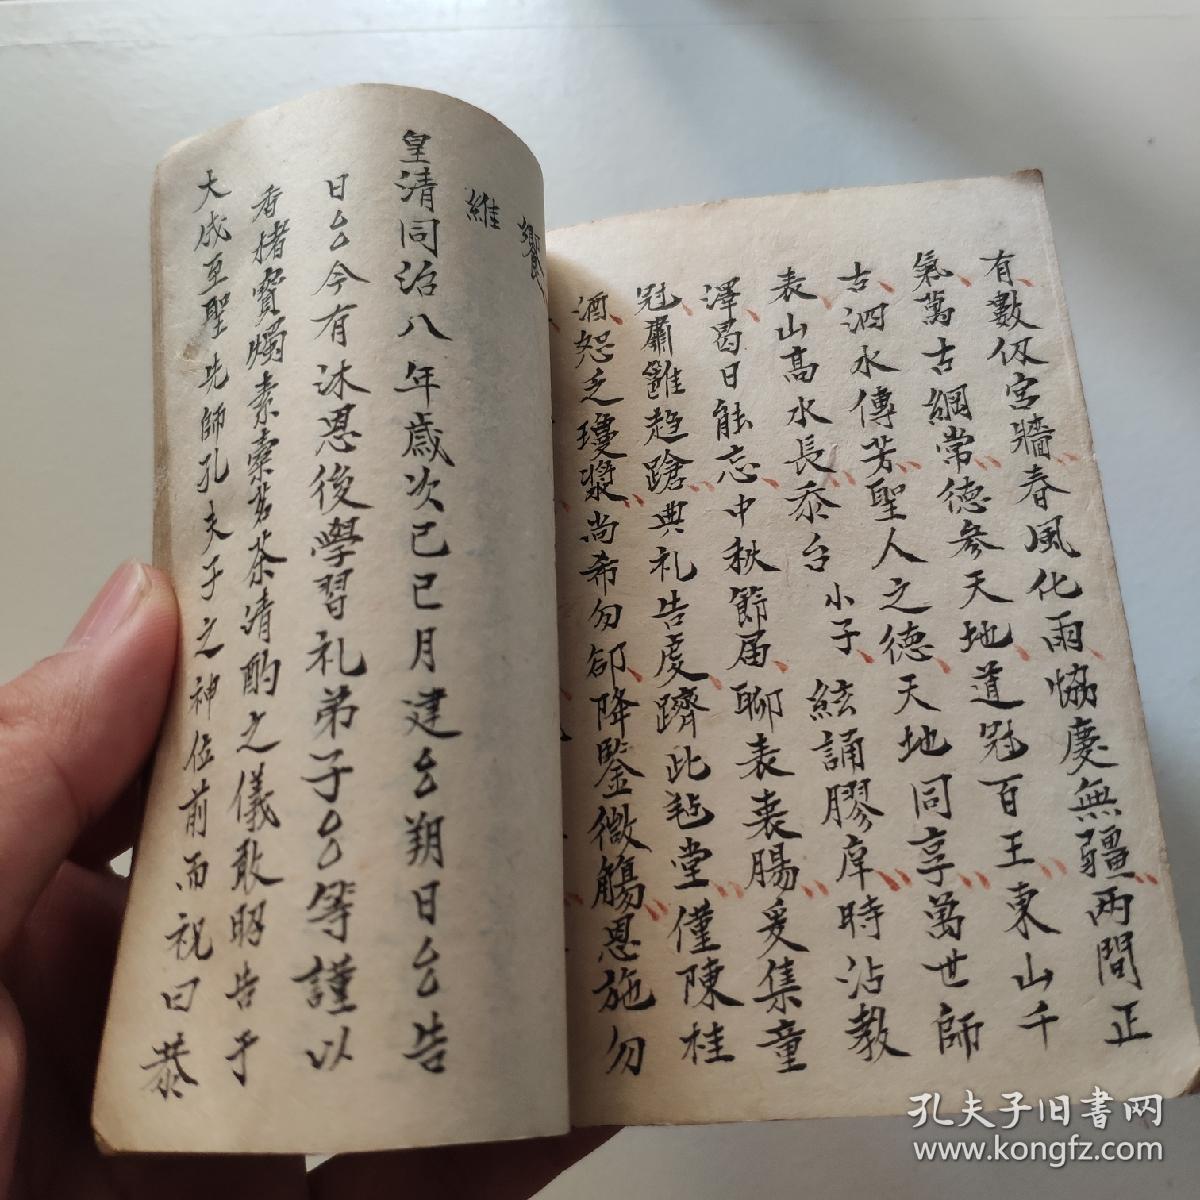 有數仭宮牆春風化雨恊慶無疆兩間正
氣萬古綱常德參天地道冠百王東山千
古泗水傳芳聖人之德天地同享萬世師
表山高水長忝台小子絃誦膠庠時沾教
澤曷日能忘中秋節届聊表衷腸爰集童
冠肅雝趋蹌典礼告虔躋此毡堂僅陳桂
酒恕乏瓊漿尚希勿郤降鑒微觴恩施勿
饗
維
皇清同治八年歲次己巳月建厶朔日厶告
日厶厶今有沐恩後學習礼弟子〇〇等謹以
香楮寶燭素粢茗茶清酌之儀敢昭告于
大成至聖先師孔夫子之神位前而祝曰恭
孔夫子旧书网
www.kongfz.com